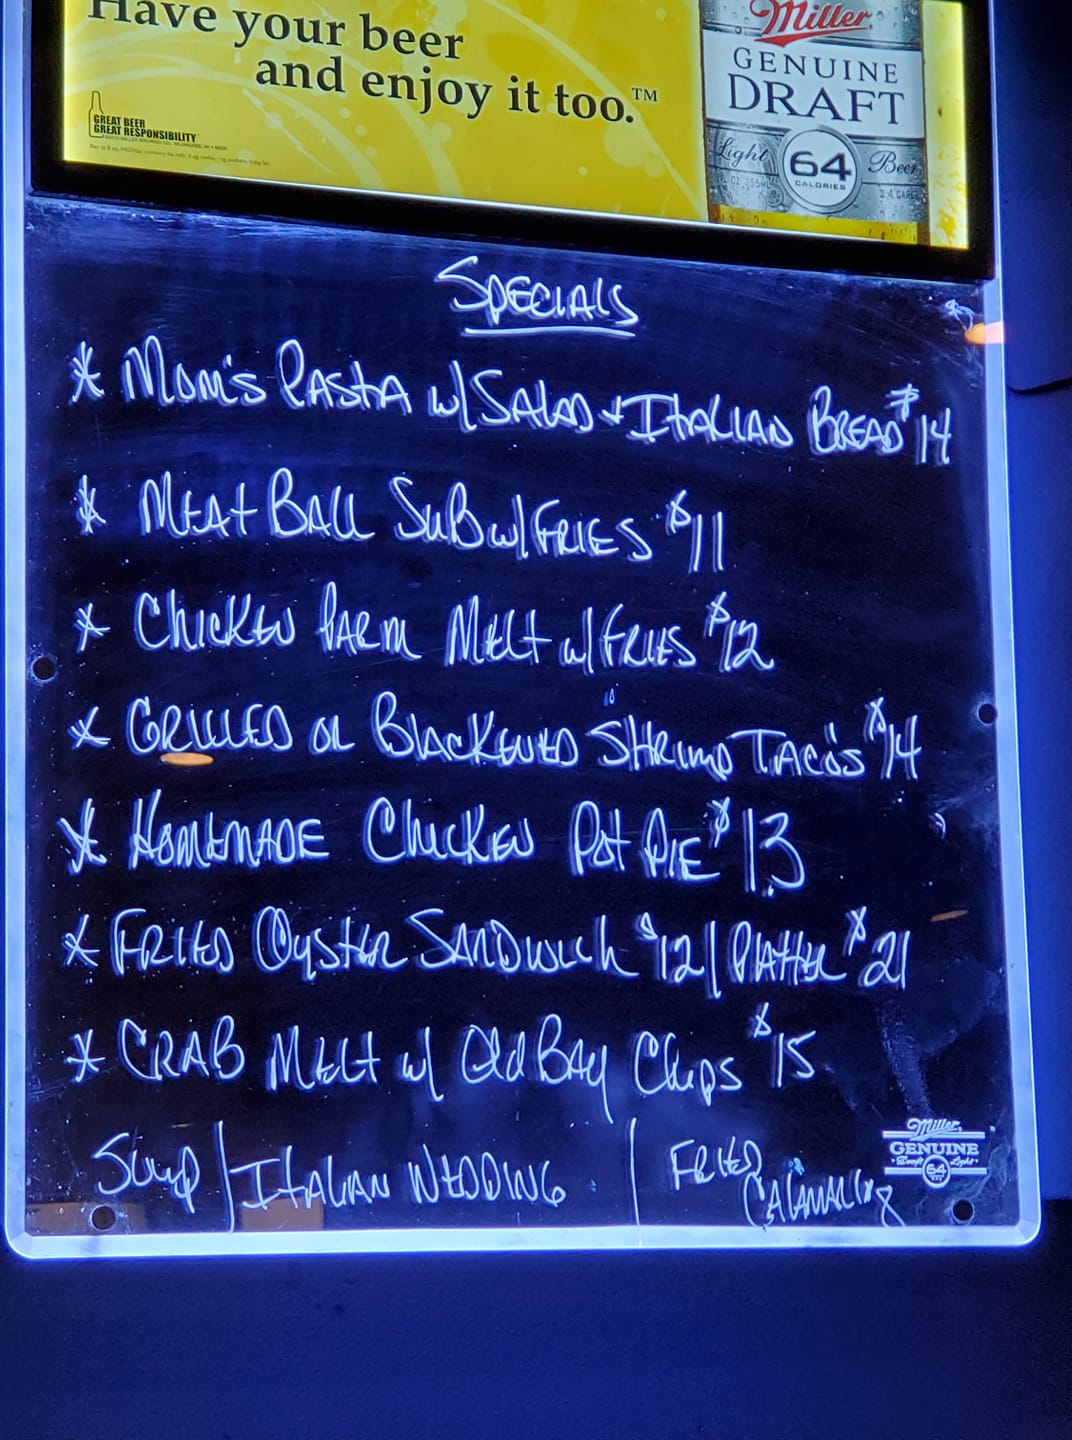 Have your beer
and enjoy it too.™
GREAT BEER
GREAT RESPONSIBILITY
Miller
GENUINE
DRAFT
Light 64 Beer
CALORIES
SPECIALS
* MOM'S PASTA w/SALAD + ITALIAN BREAD $14
* MEAT BALL SUB w/FRIES $11
* CHICKEN PARM MELT w/FRIES $12
* GRILLED OR BLACKENED SHRIMP TACO'S $14
* HOMEMADE CHICKEN POT PIE $13
* FRIED OYSTER SANDWICH $12/PLATTER $21
* CRAB MELT w/ OLD BAY CHIPS $15
SOUP/ITALIAN WEDDING | FRIED
CALAMARI
Miller
GENUINE
Draft Light
64